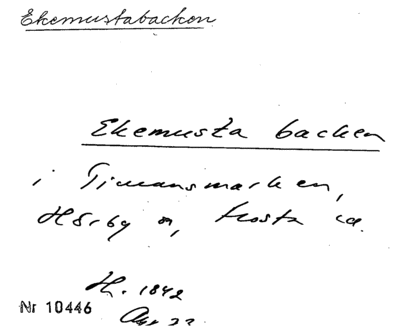 Ekemustabacken
Ekemusta backen
i Timansmarken,
Hörby sn, Frosta hd.
H. 1842
Nr 10446